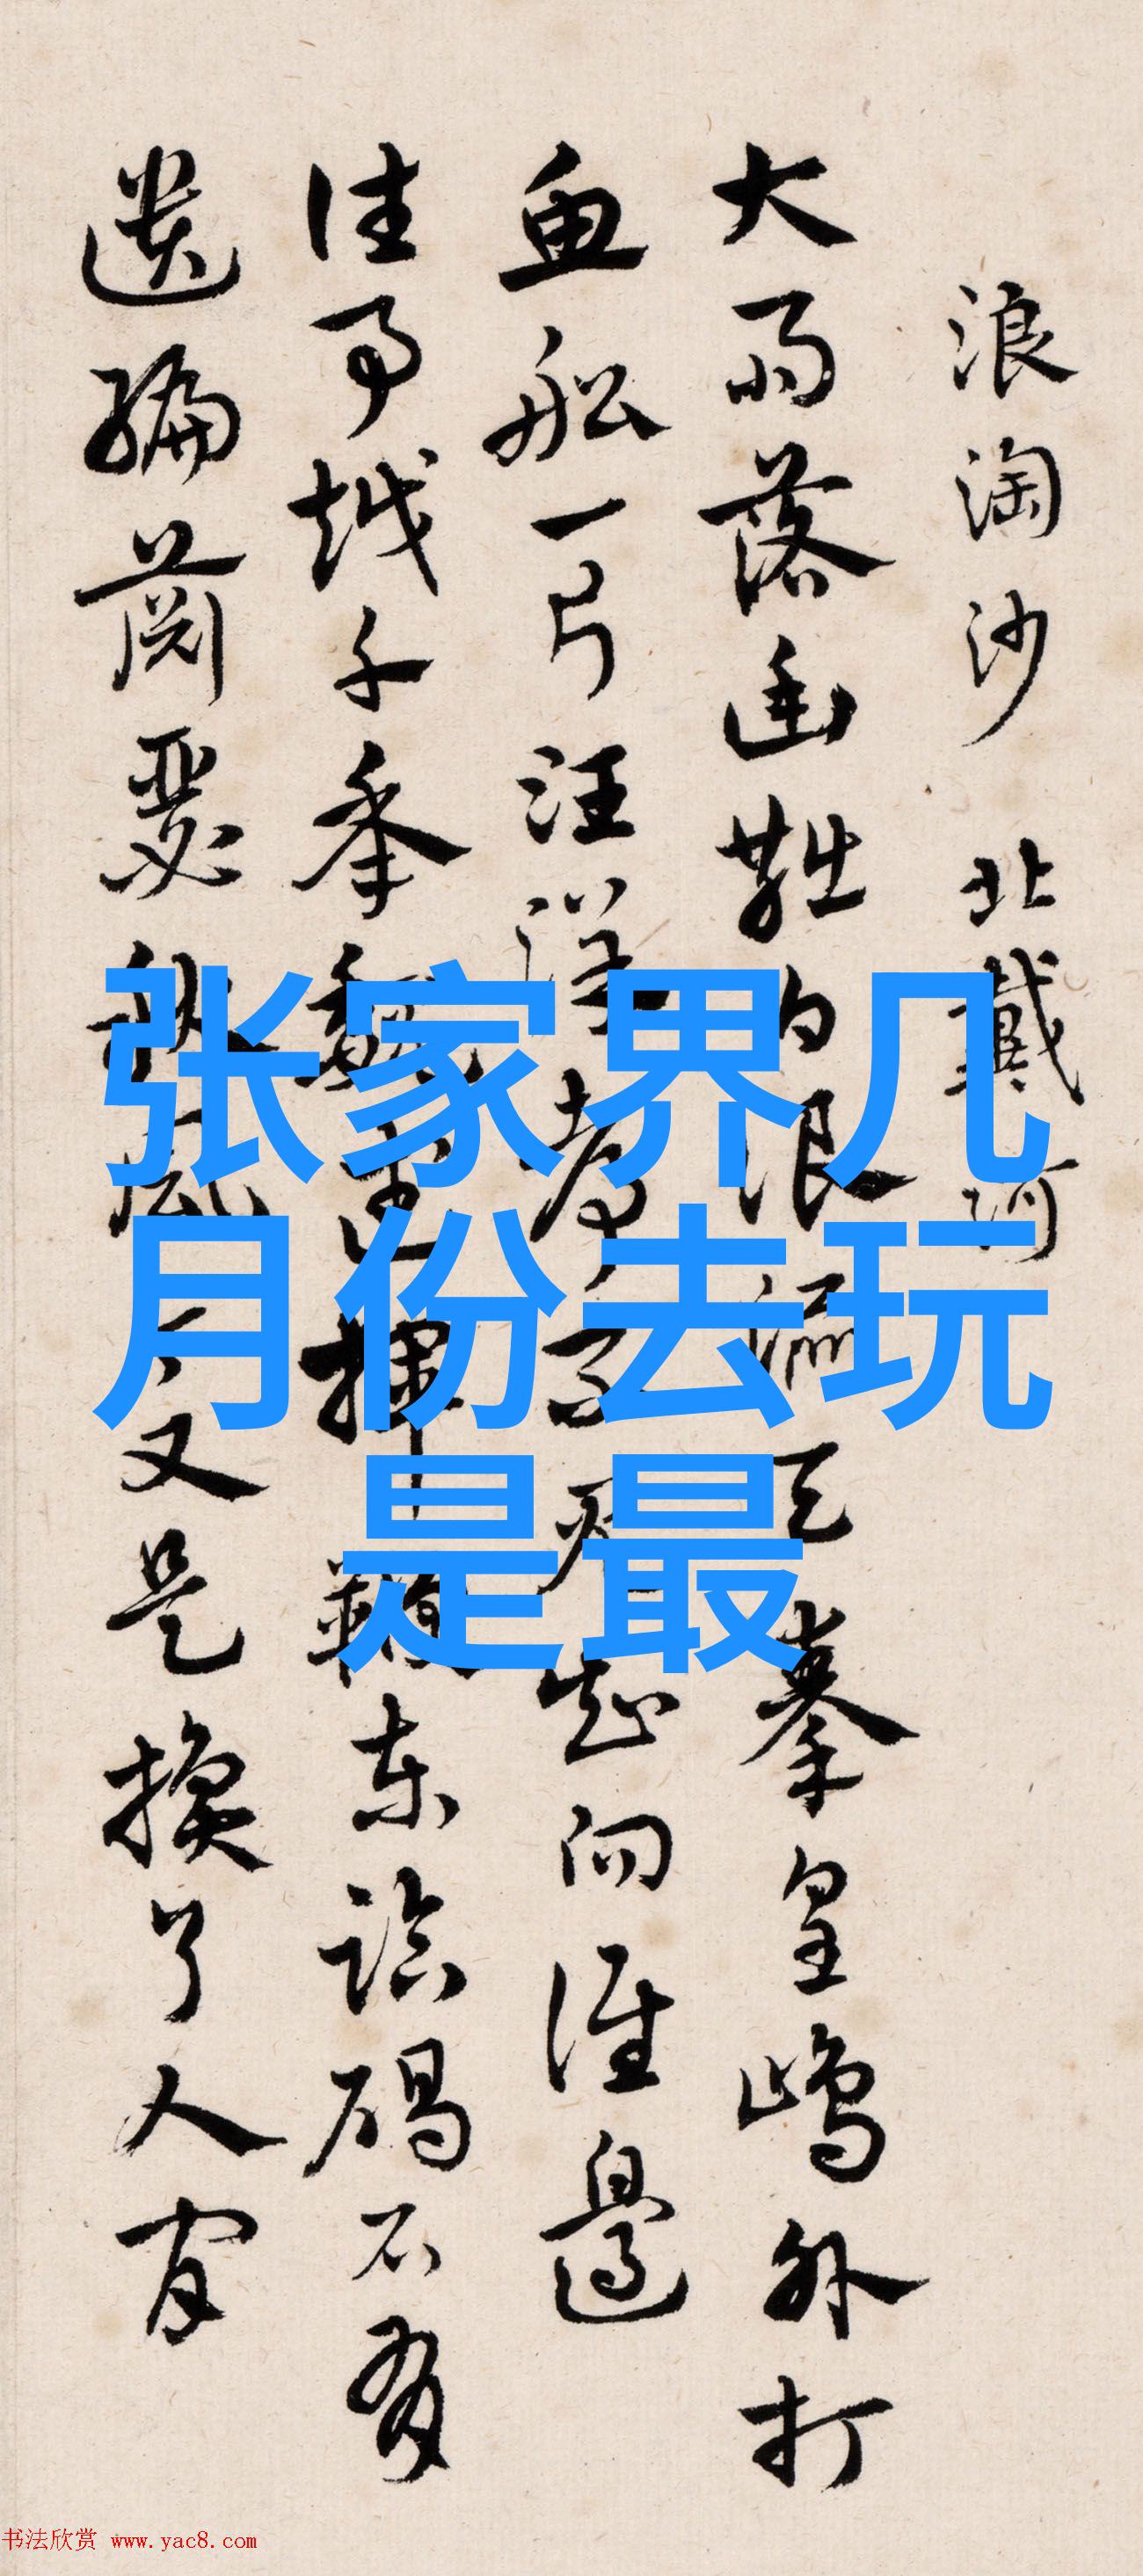 浪淘沙 北戴河
大雨落幽燕白浪滔天秦皇嶋外打
魚船一片汪洋都不見知向誰邊
往事越千年魏武揮鞭東臨碣石有
遺編蕭瑟秋風今又是換了人間
张家界几
月份去玩
是最
书法欣赏 www.yac8.com